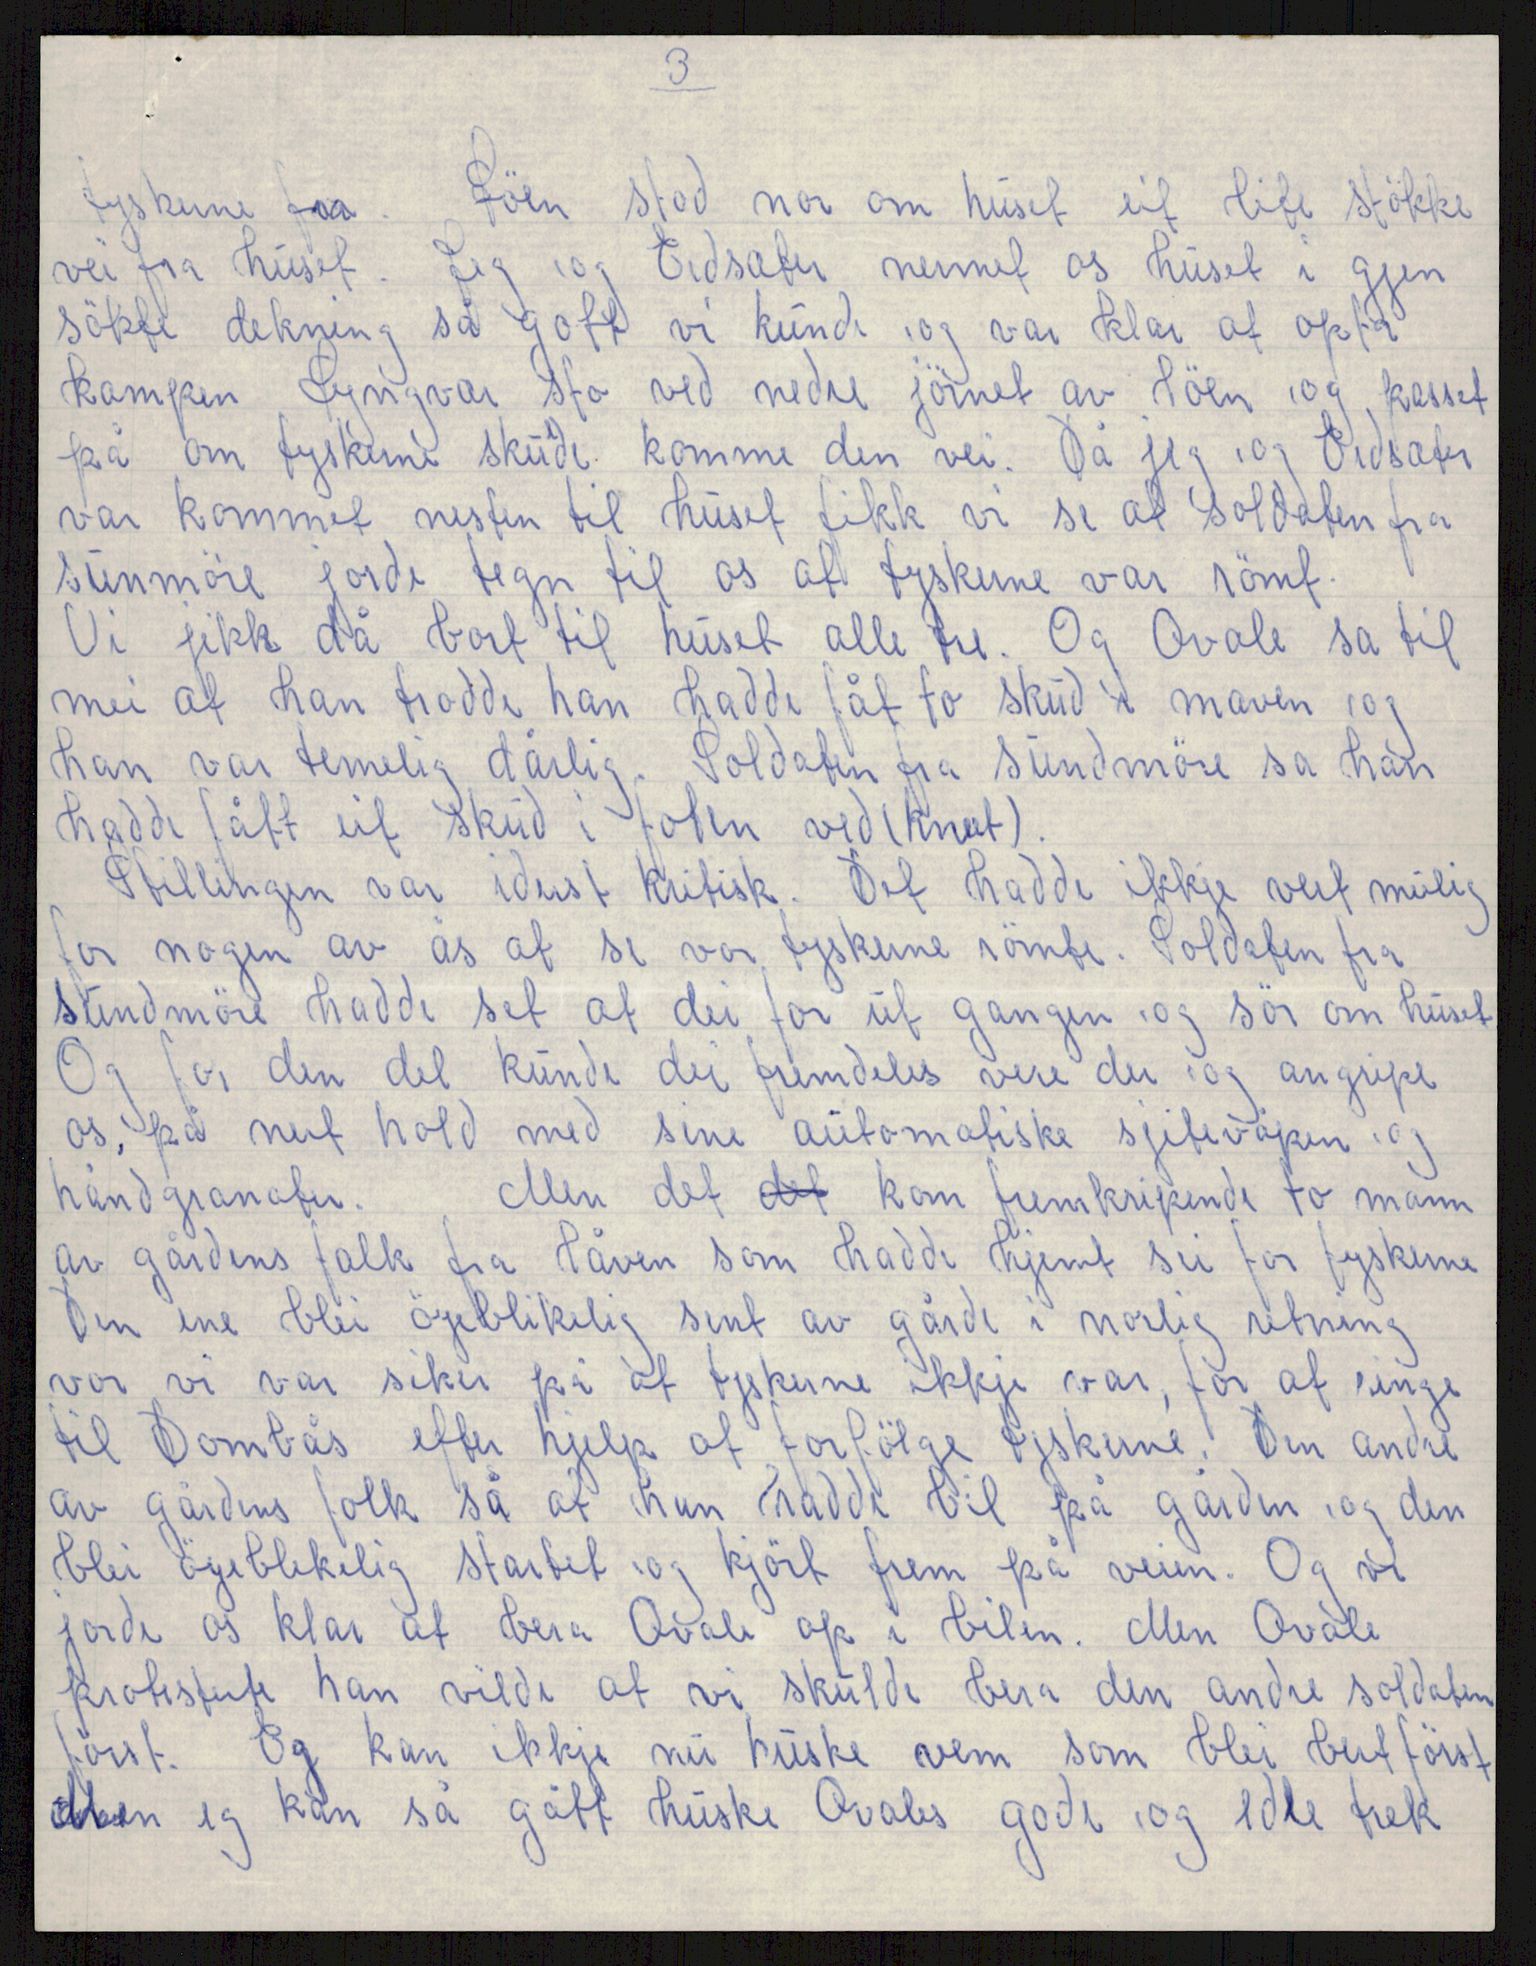 3
tyskerne fra. Löen stod nor om huset eit lite stökke
vei fra huset. Jeg og Eidsæter nermet os huset i gjen
sökte dekning så gott vi kunde og var klar at opta
kampen Lyngvar sto ved nedre jörnet av löen og passet
på om tyskerne skude komme den vei. Då jeg og Eidsæter
var kommet nesten til huset fikk vi se at soldaten fra
sunmöre jorde tegn til os at tyskerne var römt.
Vi jikk då bort til huset alle tre. Og Ovale sa til
mei at han trodde han hadde fåt to skud i maven og
han var temelig dårlig. Soldaten fra sundmöre sa han
hadde fått eit skud i foten ved (kneet).
Stillingen var iderst kritisk. Det hadde ikkje vert mulig
for nogen av ås at se vor tyskerne römte. Soldaten fra
sundmöre hadde set at dei for ut gangen og sör om huset
Og for den del kunde dei fremdeles vere der og angripe
os, på nert hold med sine automatiske sjitevåpen og
håndgranater. Men det det kom fremkripende to mann
av gårdens folk fra låven som hadde hjemt sei for tyskerne
Den ene blei öyeblikelig sent av gårde i norlig retning
vor vi var siker på at tyskerne ikkje var, for at ringe
til Dombås efter hjelp at forfölge tyskerne. Den andre
av gårdens folk så at han hadde bil på gården og den
blei öyeblekelig startet og kjört frem på veien. Og vi
jorde os klar at bera Ovale op i bilen. Men Ovale
protesterte han vilde at vi skulde bera den andre soldaten
först. Eg kan ikkje nu huske vem som blei bert först
Men eg kan så gått huske Ovales gode og edle trek